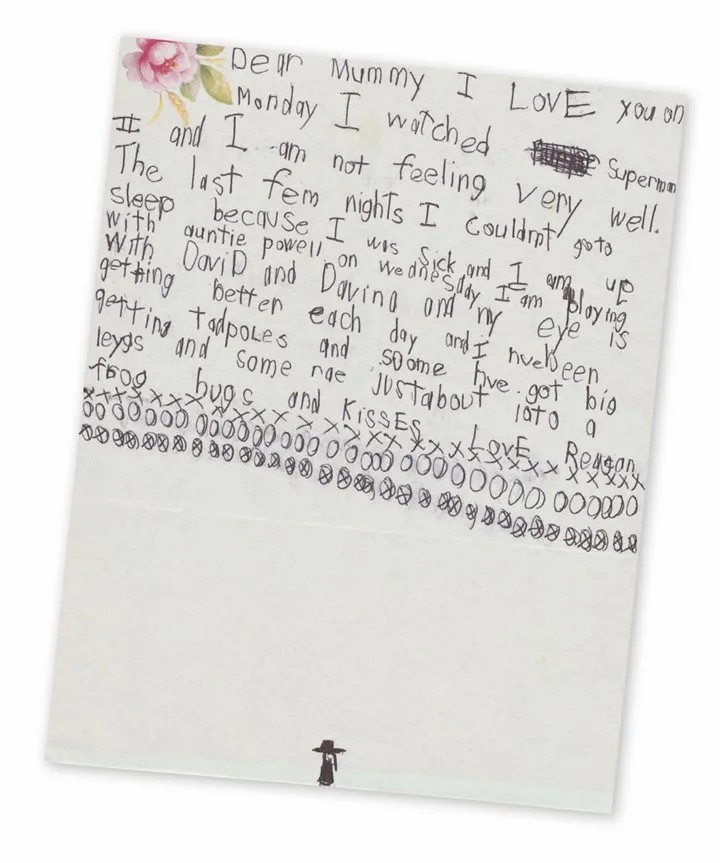 Dear Mummy I LOVE you on
Monday I watched Superman
II and I am not feeling very well.
The last fem nights I Couldnt goto
sleep because I was sick and I am up
with auntie powell on wednesday I am playing
With DaviD and Davina and my eye is
getting better each day and I hvebeen
getting tadpoles and soome hve got big
leygs and some rae justabout into a
frog hugs and kisses LOVE Reagan
xxxxxxxxxxxxxxxxxxxxxxxxxxxxxx
OOOOOOOOOOOOOOOOOOOOOOOOOOOOOO